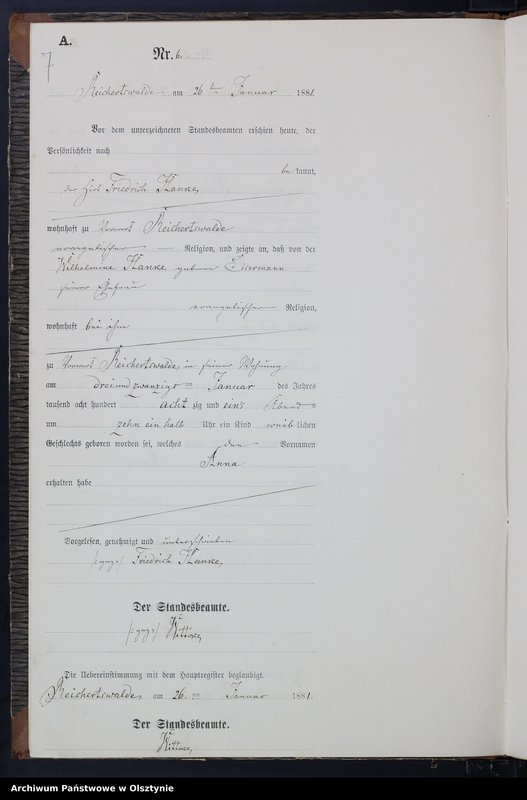 A.
7
Nr. 6.
Reichertswalde am 26 ten Januar 1881.
Vor dem unterzeichneten Standesbeamten erschien heute, der
Persönlichkeit nach
be kannt,
der Hirt Friedrich
wohnhaft zu Vorwerk Reichertswalde
evangelischer Religion, und zeigte an, daß von der
Wilhelmine geborne Eisermann
seiner Ehefrau
evangelischer Religion,
wohnhaft bei ihm
zu Vorwerk Reichertswalde, in seiner Wohnung
am dreiundzwanzigsten Januar des Jahres
tausend acht hundert acht zig und eins Abends
um zehn ein halb Uhr ein Kind weib lichen
Geschlechts geboren worden sei, welches den Vornamen
Anna
erhalten habe
Vorgelesen, genehmigt und unterschrieben
Friedrich
Der Standesbeamte.
Die Uebereinstimmung mit dem Hauptregister beglaubigt.
Reichertswalde, am 26. ten Januar 1881.
Der Standesbeamte.
Archiwum Państwowe w Olsztynie